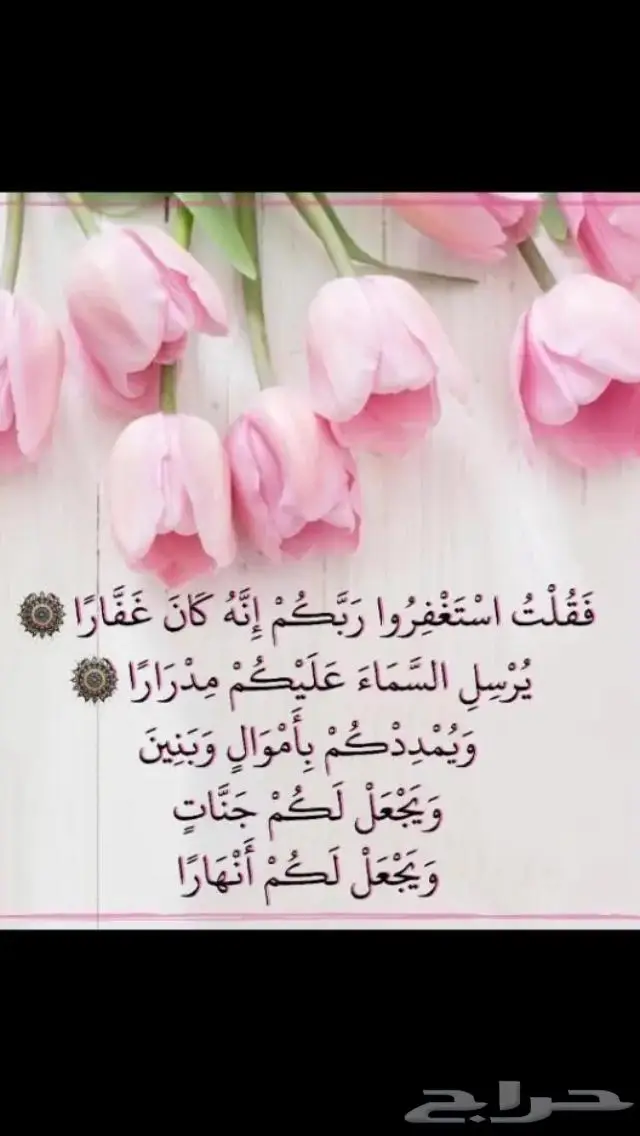 فَقُلْتُ اسْتَغْفِرُوا رَبَّكُمْ إِنَّهُ كَانَ غَفَّارًا
يُرْسِلِ السَّمَاءَ عَلَيْكُمْ مِدْرَارًا
وَيُمْدِدْكُمْ بِأَمْوَالٍ وَبَنِينَ
وَيَجْعَلْ لَكُمْ جَنَّاتٍ
وَيَجْعَلْ لَكُمْ أَنْهَارًا
حراج